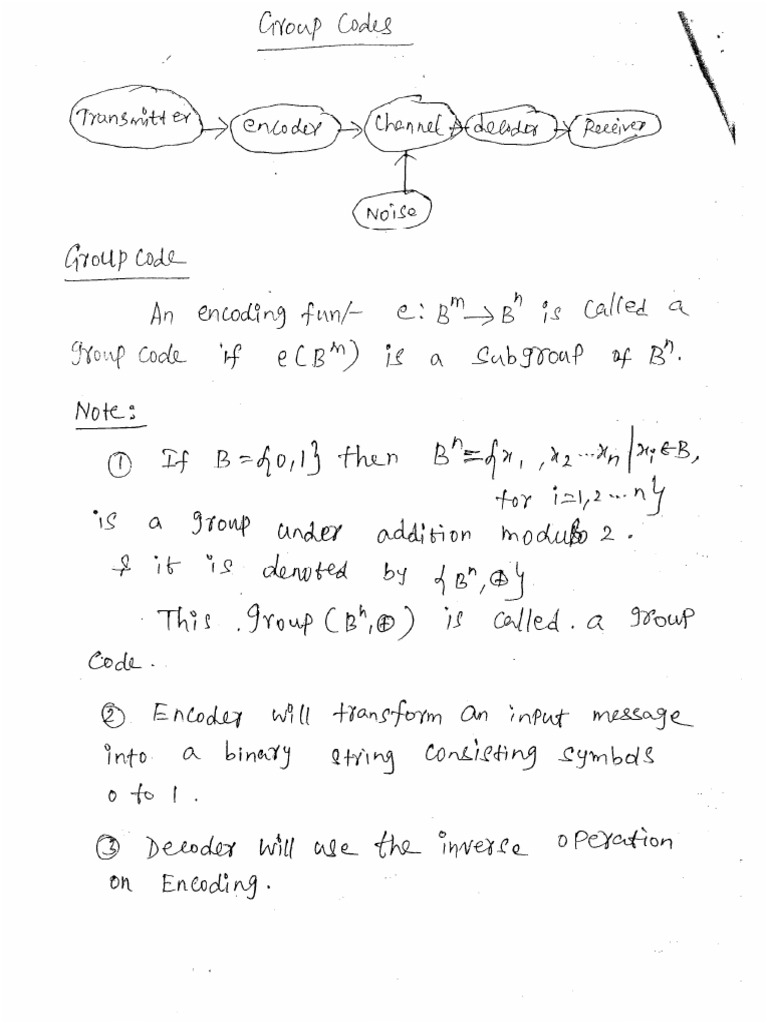 Group Codes
Transmitter → encoder → Channel → decoder → Receiver
Noise
Group Code
An encoding fun/- e: Bᵐ → Bⁿ is called a
group code if e(Bᵐ) is a subgroup of Bⁿ.
Note:
① If B = {0,1} then Bⁿ = {x₁, x₂ ... xₙ / xᵢ ∈ B,
for i=1,2 ... n}
is a group under addition modulo 2.
& it is denoted by {Bⁿ, ⊕}
This group (Bⁿ, ⊕) is called a group
Code.
② Encoder will transform an input message
into a binary string consisting symbols
0 to 1.
③ Decoder will use the inverse operation
on Encoding.